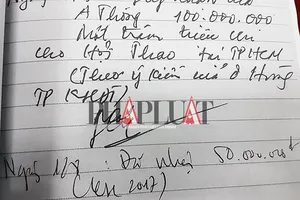 A Thông 100.000.000
Một trăm triệu chi
cho Hội Thao tại TPHCM
(Theo ý kiến của a Hùng
TP KHĐT)
PHÁPLUẬT
Ngày 1/8 : Đã nhận 50.000.000đ
(Lần 2017)